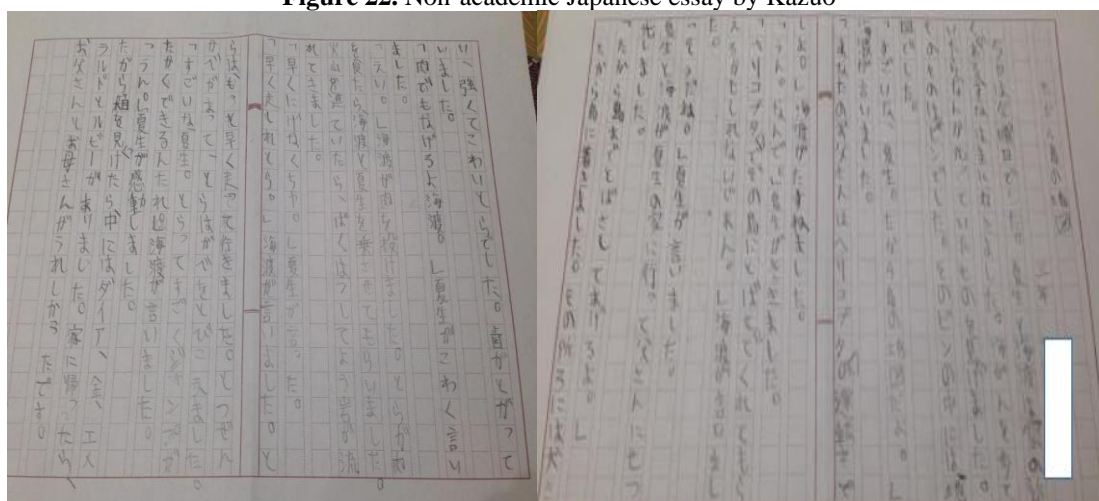 Figure 22. Non-academic Japanese essay by Kazuo
島の地図
そのものはビンでした。そのビンの中には
地図でした。
「すごいな、夏生。たから島の地図だよ。」
海渡が言いました。
「あなたのお父さんはヘリコプタの運転さんで
しょ。」海渡がたずねました。
「うん。なんで。」夏生がとききました。
「ヘリコプタでその島にとばしてくれてもら
えるかもしれないじゃん。」海渡が言いまし
た。
「そうだね。」夏生が言いました。
夏生と海渡が夏生の家に行ってお父さんにむつ
「たから島まで、とばさしてあげるよ。」
たから島に着きました。その所ろには犬
い、強くてこわいとらでした。歯がとがって
いました。
「肉でもなげろよ海渡。」夏生がこわく言い
ました。
「えい。」海渡が肉を投げました。とらが肉
を食たら海渡と夏生を乗させてもらいました。
火山を通ていたら、ばくはつしてよう岩が流
れてきました。
「早くにげなくちゃ。」夏生が言った。
「早く走しれとら。」海渡が言いました。と
らはもっと早く走って行きました。とつぜん
かべがあって、とらはかべをとびこえました。
「すごいな夏生。とらってすごくジャンプが
たかくできるんたね」海渡が言いました。
「うん。」夏生が感動しました。
たから箱を見けたら中にはダイア、金、エメ
ラルドとルビーがありました。家に帰ったら、
お父さんとお母さんがうれしかったです。